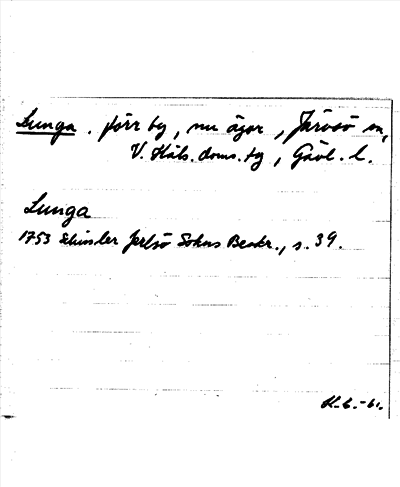 Lunga. förr by, nu ägor, Järvsö sn,
V. Häls. doms. tg, Gävl. l.
Lunga
1753 Schissler Jerlsö Sokns Beskr., s. 39.